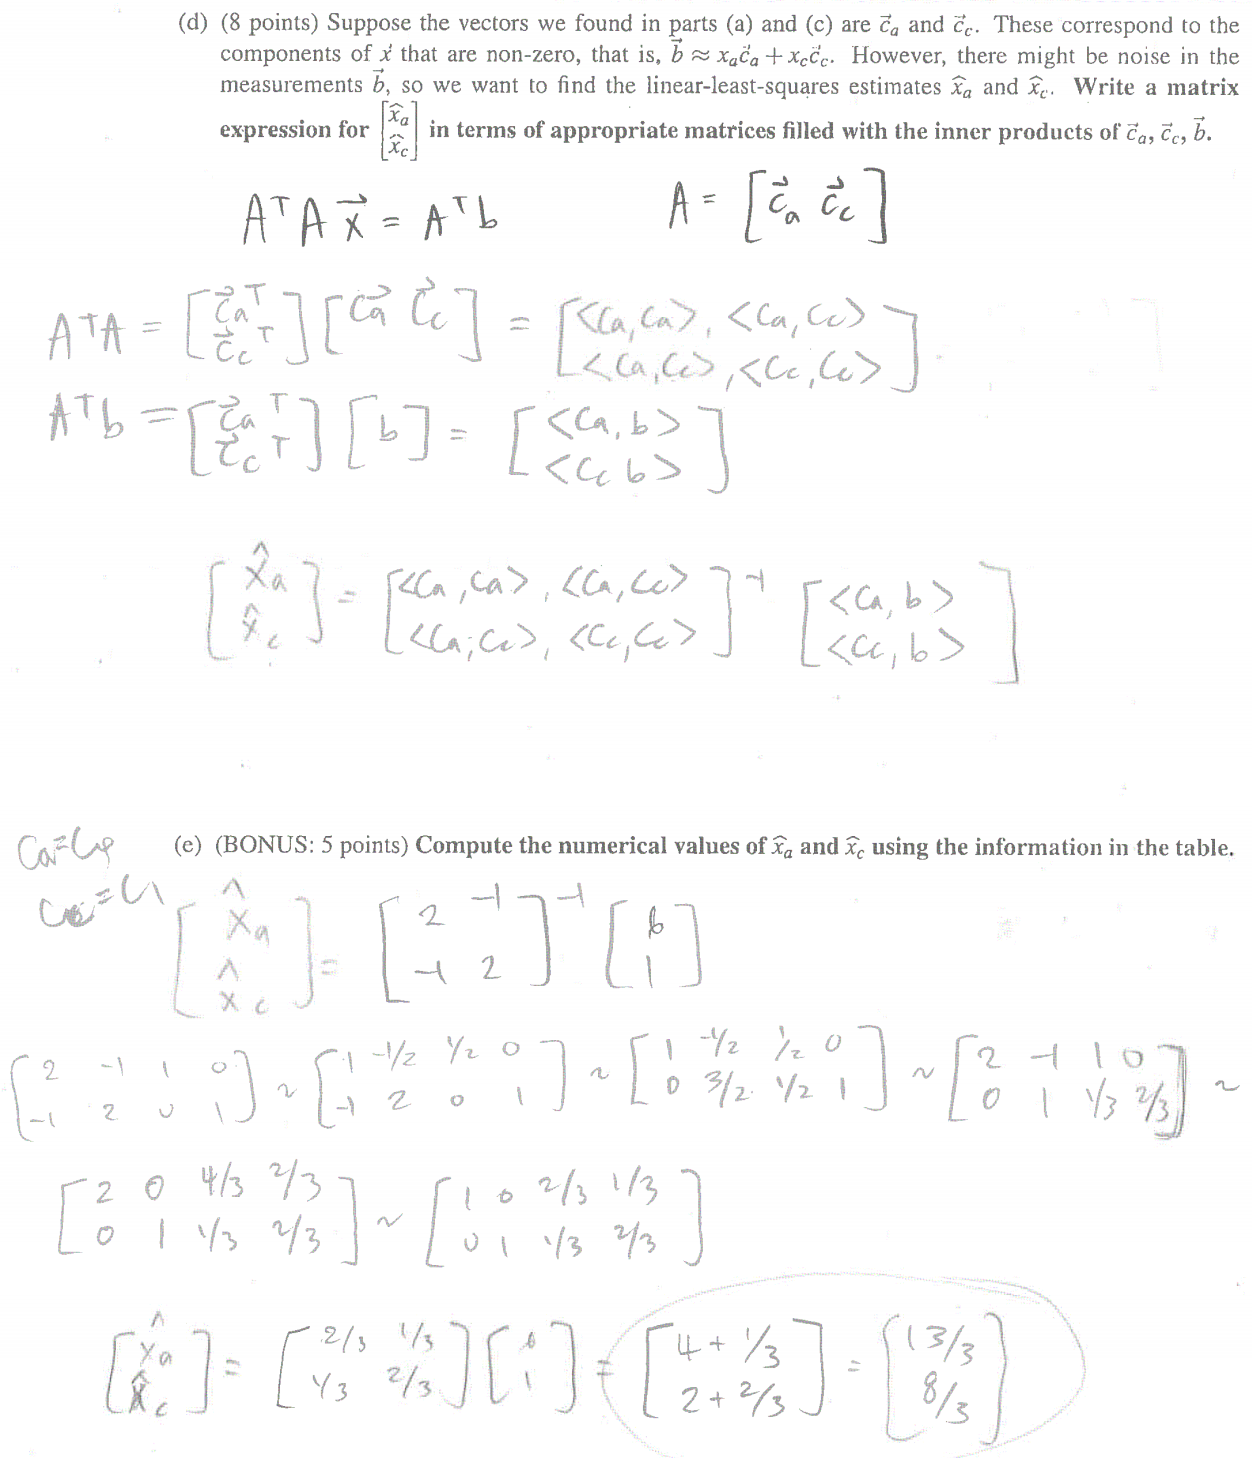 (d) (8 points) Suppose the vectors we found in parts (a) and (c) are c⃗ₐ and c⃗_c. These correspond to the
components of x⃗ that are non-zero, that is, b⃗ ≈ xₐc⃗ₐ + x_c c⃗_c. However, there might be noise in the
measurements b⃗, so we want to find the linear-least-squares estimates x̂ₐ and x̂_c. Write a matrix
expression for [x̂ₐ; x̂_c] in terms of appropriate matrices filled with the inner products of c⃗ₐ, c⃗_c, b⃗.
AᵀA x⃗ = Aᵀb A = [c⃗ₐ c⃗_c]
AᵀA = [c⃗ₐᵀ; c⃗_cᵀ] [c⃗ₐ c⃗_c] = [<cₐ,cₐ>, <cₐ,c_c>; <cₐ,c_c>, <c_c,c_c>]
Aᵀb = [c⃗ₐᵀ; c⃗_cᵀ] [b] = [<cₐ,b>; <c_c b>]
[x̂ₐ; x̂_c] = [<cₐ,cₐ>, <cₐ,c_c>; <cₐ,c_c>, <c_c,c_c>]⁻¹ [<cₐ,b>; <c_c,b>]
(e) (BONUS: 5 points) Compute the numerical values of x̂ₐ and x̂_c using the information in the table.
[x̂ₐ; x̂_c] = [2 -1; -1 2]⁻¹ [6; 1]
[2 -1 1 0; -1 2 0 1] ~ [1 -1/2 1/2 0; -1 2 0 1] ~ [1 -1/2 1/2 0; 0 3/2 1/2 1] ~ [2 -1 1 0; 0 1 1/3 2/3] ~
[2 0 4/3 2/3; 0 1 1/3 2/3] ~ [1 0 2/3 1/3; 0 1 1/3 2/3]
[x̂ₐ; x̂_c] = [2/3 1/3; 1/3 2/3] [6; 1] = [4 + 1/3; 2 + 2/3] = [13/3; 8/3]